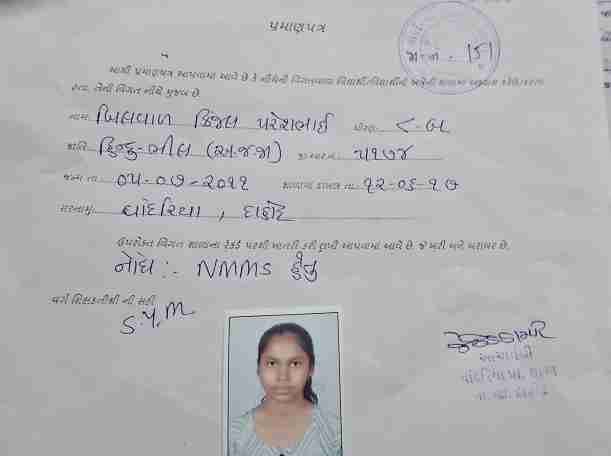 પ્રમાણપત્ર
જા.નં. - 151
આથી પ્રમાણપત્ર આપવામાં આવે છે કે નીચેની વિગતવાળા વિદ્યાર્થી/વિદ્યાર્થીની અત્રેની શાળામાં અભ્યાસ કરેલ/કરતા
હતા. તેની વિગત નીચે મુજબ છે.
નામ: બિલવાળ કિંજલ પરેશભાઈ ધોરણ: ૮-બ
જાતિ: હિન્દુ-ભીલ (અ.જ.જા) જી.આર.નં. ૫૧૭૪
જન્મ તા. ૦૫-૦૭-૨૦૧૧ શાળામાં દાખલ તા. ૧૨-૦૬-૧૭
સરનામું: ચાંદરિયા, દાહોદ
ઉપરોક્ત વિગત શાળાના રેકર્ડ પરથી ખાતરી કરી લખી આપવામાં આવે છે. જે ખરી અને બરાબર છે.
નોંધ :- NMMS હેતુ
વર્ગ શિક્ષકશ્રી ની સહી
S.Y.M
આચાર્યશ્રી